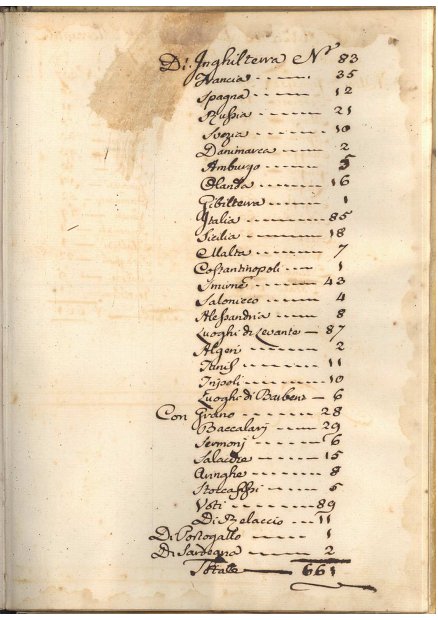 Di: Inghilterra Nº 83
Francia 35
Spagna 12
Russia 21
Svezia 10
Danimarca 2
Amburgo 5
Olanda 16
Gibilterra 1
Italia 85
Sicilia 18
Malta 7
Costantinopoli 1
Smirne 43
Salonicco 4
Alessandria 8
Luoghi di Levante 87
Algeri 2
Tunis 11
Tripoli 10
Luoghi di Barberia 6
Con Grano 28
Baccalarj 29
Sermonj 6
Salacche 15
Aringhe 8
Stoccaffissi 5
Voti 89
Di Relaccio 11
Di Portogallo 1
Di Sardegna 2
Totale 661